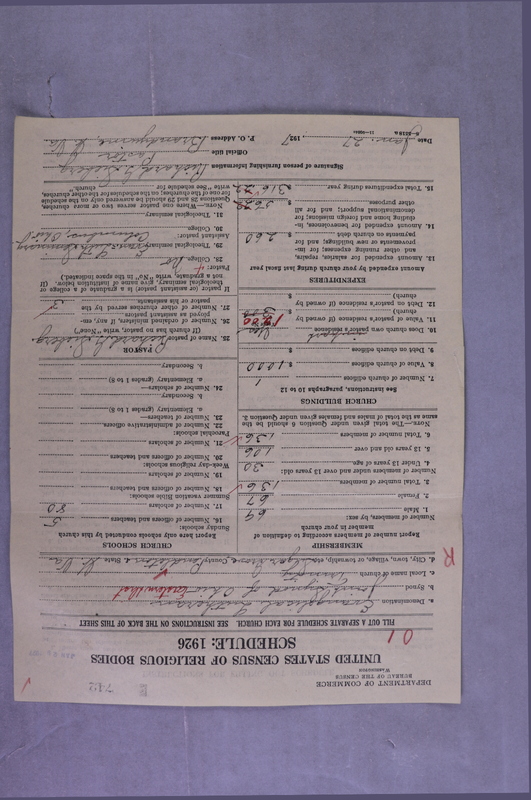 DEPARTMENT OF COMMERCE
BUREAU OF THE CENSUS
WASHINGTON
UNITED STATES CENSUS OF RELIGIOUS BODIES
SCHEDULE: 1926
FILL OUT SEPARATE SCHEDULE FOR EACH CHURCH. SEE INSTRUCTIONS ON THE BACK OF THIS SHEET
a. Denomination Evangelical Lutheran
b. Synod Joint Synod of Ohio
c. Local name of church
d. City, town, village, or township, etc. County Pendleton State W. Va
MEMBERSHIP
Report here number of members according to definition of member in your church
Number of members, by sex:
1. Male 69
2. Female 67
3. Total number of members 136
Number of members under and over 13 years old:
4. Under 13 years of age 30
5. 13 years old and over 106
6. Total number of members 136
NOTE.—The total given under Question 6 should be the
same as the total of males and females given under Question 3.
CHURCH BUILDINGS
See instructions, paragraphs 10 to 12
7. Number of church edifices 1
8. Value of church edifices $ 1000
9. Debt on church edifices $
10. Does church own pastor's residence
11. Value of pastor's residence (if owned by
church) $
12. Debt on pastor's residence (if owned by
church) $
EXPENDITURES
Amount expended by your church during last fiscal year
13. Amount expended for salaries, repairs,
and other running expenses; for im-
provements or new building; and for
payments on church debt $ 260
14. Amount expended for benevolences, in-
cluding home and foreign missions; for
denominational support; and for all
other purposes
15. Total expenditures during year
CHURCH SCHOOLS
Report here only schools conducted by this church
Sunday schools:
16. Number of officers and teachers 5
17. Number of scholars 80
Summer vacation Bible schools:
18. Number of officers and teachers
19. Number of scholars
Week-day religious schools:
20. Number of officers and teachers
21. Number of scholars
Parochial schools:
22. Number of administrative officers
23. Number of teachers—
a. Elementary (grades 1 to 8)
b. Secondary
24. Number of scholars—
a. Elementary (grades 1 to 8)
b. Secondary
PASTOR
25. Name of pastor
(If church has no pastor, write "None")
26. Number of ordained ministers, if any, em-
ployed as assistant pastors
27. Number of other churches served by the
pastor or his assistants 3
If pastor (or assistant pastor) is a graduate of a college or
theological seminary, give name of institution below. (If
not a graduate, write "No" in the space indicated.)
Pastor:
28. College
29. Theological seminary
Columbus, Ohio
Assistant pastor:
30. College
31. Theological seminary
NOTE.—Where one pastor serves two or more churches,
Questions 28 and 29 should be answered only on the schedule
for one of the churches; on the schedules for the other churches,
write "See schedule for church."
Signature of person furnishing information
Official title Pastor
P. O. Address Brandywine, W. Va.
Date Jan. 27, 1927